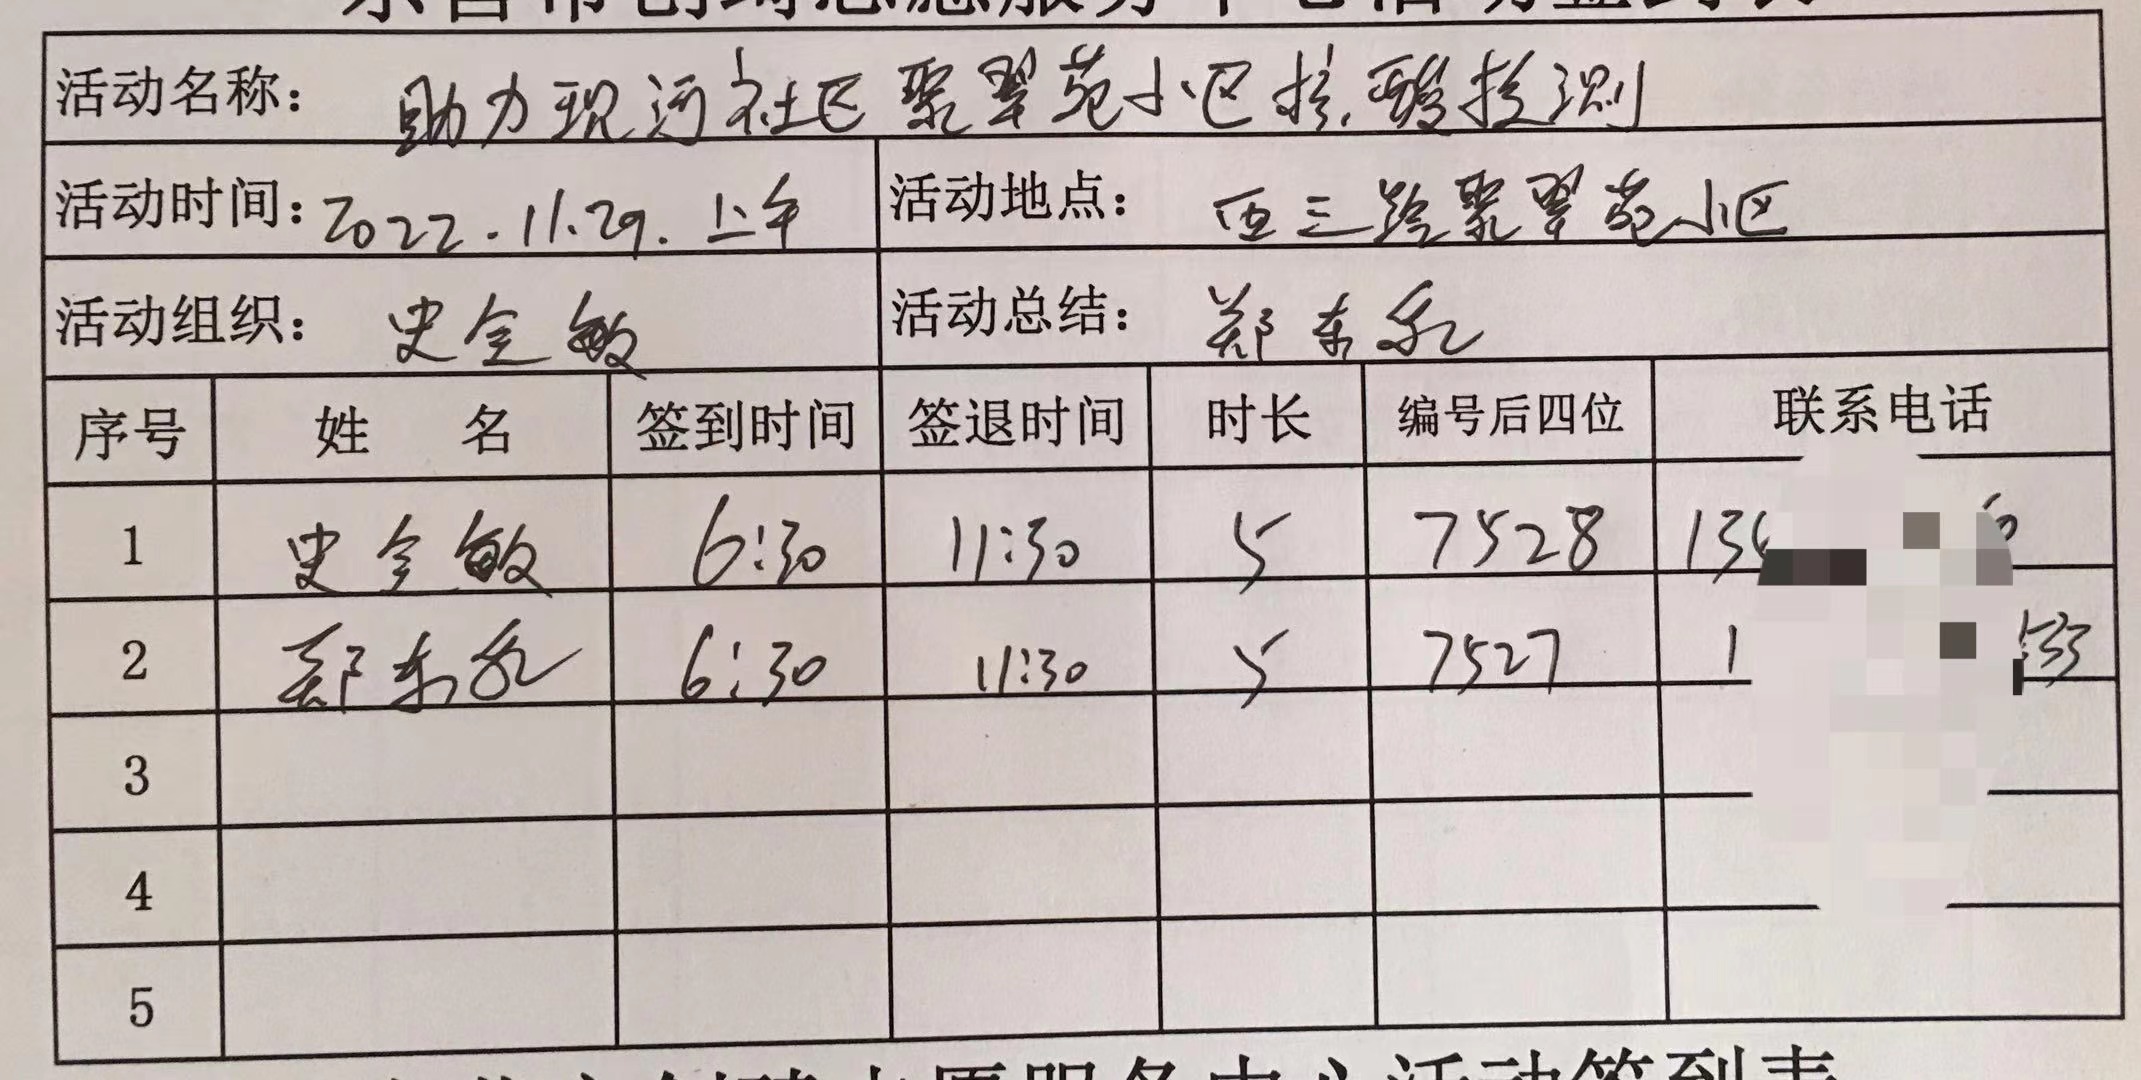 活动名称： 助力现河社区聚翠苑小区核酸检测
活动时间：2022.11.29.上午 活动地点： 西三路聚翠苑小区
活动组织： 史全敏 活动总结： 郑东
序号 姓 名 签到时间 签退时间 时长 编号后四位 联系电话
1 史全敏 6:30 11:30 5 7528 13
2 郑东 6:30 11:30 5 7527 1
3
4
5
服务中心活动签到表